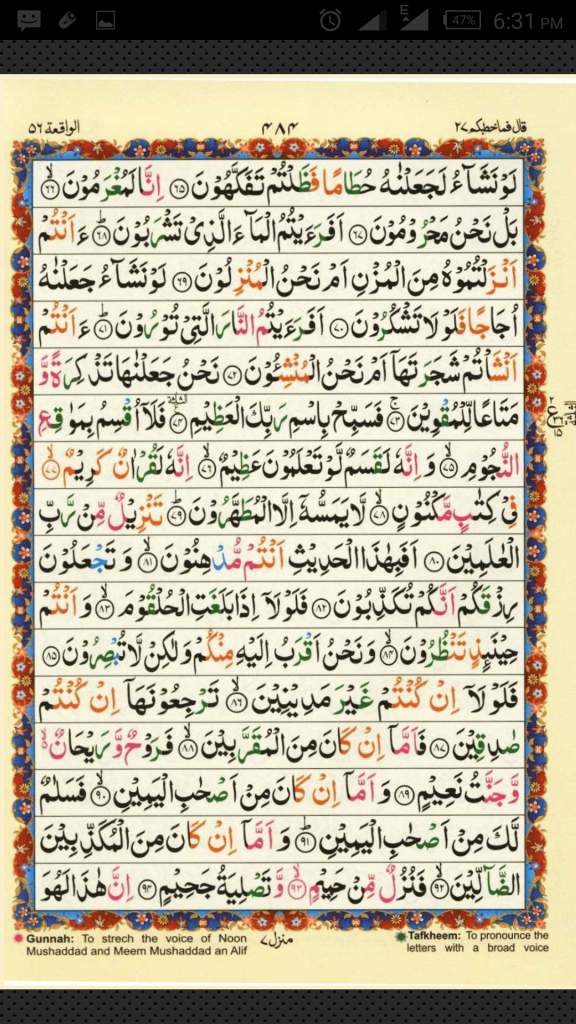 47% 6:31 PM
E
قال فماخطبكم ٢٧
٤٨٤
الواقعة ٥٦
لَوْ نَشَآءُ لَجَعَلْنٰهُ حُطَامًا فَظَلْتُمْ تَفَكَّهُوْنَ ﴿٦٥﴾ اِنَّا لَمُغْرَمُوْنَ ﴿٦٦﴾ۙ
بَلْ نَحْنُ مَحْرُوْمُوْنَ ﴿٦٧﴾ اَفَرَءَيْتُمُ الْمَآءَ الَّذِيْ تَشْرَبُوْنَ ﴿٦٨﴾ؕ ءَاَنْتُمْ
اَنْزَلْتُمُوْهُ مِنَ الْمُزْنِ اَمْ نَحْنُ الْمُنْزِلُوْنَ ﴿٦٩﴾ لَوْ نَشَآءُ جَعَلْنٰهُ
اُجَاجًا فَلَوْلَا تَشْكُرُوْنَ ﴿٧٠﴾ اَفَرَءَيْتُمُ النَّارَ الَّتِيْ تُوْرُوْنَ ﴿٧١﴾ؕ ءَاَنْتُمْ
اَنْشَاْتُمْ شَجَرَتَهَآ اَمْ نَحْنُ الْمُنْشِـُٔوْنَ ﴿٧٢﴾ نَحْنُ جَعَلْنٰهَا تَذْكِرَةً وَّ
مَتَاعًا لِّلْمُقْوِيْنَ ﴿٧٣﴾ۚ فَسَبِّحْ بِاسْمِ رَبِّكَ الْعَظِيْمِ ﴿٧٤﴾ فَلَآ اُقْسِمُ بِمَوٰقِعِ
النُّجُوْمِ ﴿٧٥﴾ۙ وَاِنَّهٗ لَقَسَمٌ لَّوْ تَعْلَمُوْنَ عَظِيْمٌ ﴿٧٦﴾ۙ اِنَّهٗ لَقُرْاٰنٌ كَرِيْمٌ ﴿٧٧﴾ۙ
فِيْ كِتٰبٍ مَّكْنُوْنٍ ﴿٧٨﴾ۙ لَّا يَمَسُّهٗٓ اِلَّا الْمُطَهَّرُوْنَ ﴿٧٩﴾ؕ تَنْزِيْلٌ مِّنْ رَّبِّ
الْعٰلَمِيْنَ ﴿٨٠﴾ اَفَبِهٰذَا الْحَدِيْثِ اَنْتُمْ مُّدْهِنُوْنَ ﴿٨١﴾ۙ وَتَجْعَلُوْنَ
رِزْقَكُمْ اَنَّكُمْ تُكَذِّبُوْنَ ﴿٨٢﴾ فَلَوْلَآ اِذَا بَلَغَتِ الْحُلْقُوْمَ ﴿٨٣﴾ۙ وَاَنْتُمْ
حِيْنَئِذٍ تَنْظُرُوْنَ ﴿٨٤﴾ۙ وَنَحْنُ اَقْرَبُ اِلَيْهِ مِنْكُمْ وَلٰكِنْ لَّا تُبْصِرُوْنَ ﴿٨٥﴾
فَلَوْلَآ اِنْ كُنْتُمْ غَيْرَ مَدِيْنِيْنَ ﴿٨٦﴾ۙ تَرْجِعُوْنَهَآ اِنْ كُنْتُمْ
صٰدِقِيْنَ ﴿٨٧﴾ فَاَمَّآ اِنْ كَانَ مِنَ الْمُقَرَّبِيْنَ ﴿٨٨﴾ۙ فَرَوْحٌ وَّرَيْحَانٌ ۙ
وَّجَنَّتُ نَعِيْمٍ ﴿٨٩﴾ وَاَمَّآ اِنْ كَانَ مِنْ اَصْحٰبِ الْيَمِيْنِ ﴿٩٠﴾ۙ فَسَلٰمٌ
لَّكَ مِنْ اَصْحٰبِ الْيَمِيْنِ ﴿٩١﴾ؕ وَاَمَّآ اِنْ كَانَ مِنَ الْمُكَذِّبِيْنَ
الضَّآلِّيْنَ ﴿٩٢﴾ۙ فَنُزُلٌ مِّنْ حَمِيْمٍ ﴿٩٣﴾ۙ وَّتَصْلِيَةُ جَحِيْمٍ ﴿٩٤﴾ اِنَّ هٰذَا لَهُوَ
Gunnah: To strech the voice of Noon
Mushaddad and Meem Mushaddad an Alif
منزل ٧
Tafkheem: To pronounce the
letters with a broad voice